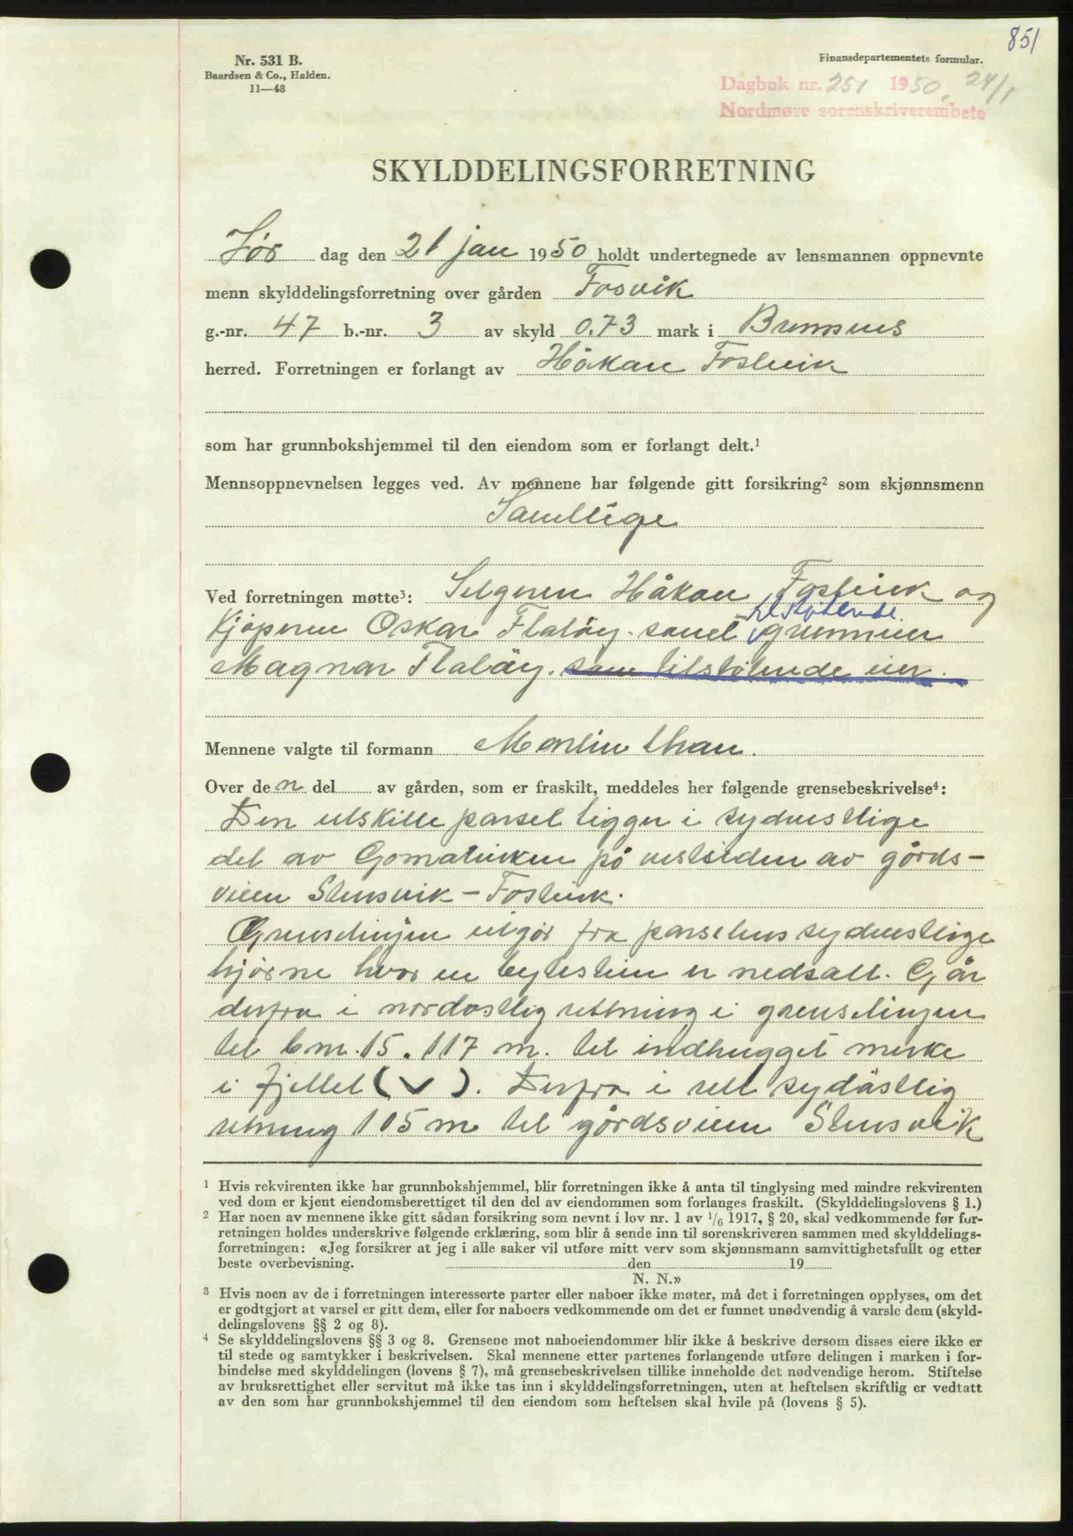 851
Nr. 531 B.
Baardsen & Co., Halden.
11—48
Finansdepartementets formular.
Dagbok nr. 251 1950, 24/1
Nordmøre sorenskriverembete
SKYLDDELINGSFORRETNING
Lør dag den 21 jan 1950 holdt undertegnede av lensmannen oppnevnte
menn skylddelingsforretning over gården Fosvik
g.-nr. 47 b.-nr. 3 av skyld 0.73 mark i Bremsnes
herred. Forretningen er forlangt av Håkon Fostvik
som har grunnbokshjemmel til den eiendom som er forlangt delt.¹
Mennsoppnevnelsen legges ved. Av mennene har følgende gitt forsikring² som skjønnsmenn
Samtlige
Ved forretningen møtte³: Selgeren Håkon Fostvik og
tilstøtende
Kjøperen Oskar Flatøy. samt grunneier
Magnar Flatøy. som tilstøtende eier.
Mennene valgte til formann Martin
Over de n del av gården, som er fraskilt, meddeles her følgende grensebeskrivelse⁴:
Den utskilte parsel ligger i sydvestlige
del av på vestsiden av gårds-
veien Stensvik - Fostvik.
Grenselinjen utgår fra parselens sydvestlige
hjørne hvor en bytestein er nedsatt. Går
derfra i nordostlig rettning i grenselinjen
til bnr. 15. 117 m. til indhugget merke
i fjellet (v). Derfra i rett sydøstlig
retning 105 m til gårdsveien Stensvik
¹ Hvis rekvirenten ikke har grunnbokshjemmel, blir forretningen ikke å anta til tinglysing med mindre rekvirenten
ved dom er kjent eiendomsberettiget til den del av eiendommen som forlanges fraskilt. (Skylddelingslovens § 1.)
² Har noen av mennene ikke gitt sådan forsikring som nevnt i lov nr. 1 av 1/6 1917, § 20, skal vedkommende før for-
retningen holdes underskrive følgende erklæring, som blir å sende inn til sorenskriveren sammen med skylddelings-
forretningen: «Jeg forsikrer at jeg i alle saker vil utføre mitt verv som skjønnsmann samvittighetsfullt og etter
beste overbevisning. den 19
N. N.»
³ Hvis noen av de i forretningen interesserte parter eller naboer ikke møter, må det i forretningen opplyses, om det
er godtgjort at varsel er gitt dem, eller for naboers vedkommende om det er funnet unødvendig å varsle dem (skyld-
delingslovens §§ 2 og 8).
⁴ Se skylddelingslovens §§ 3 og 8. Grensene mot naboeiendommer blir ikke å beskrive dersom disses eiere ikke er
til stede og samtykker i beskrivelsen. Skal mennene etter partenes forlangende utføre delingen i marken i for-
bindelse med skylddelingen (lovens § 7), må grensebeskrivelsen tillike inneholde det nødvendige herom. Stiftelse
av bruksrettighet eller servitut må ikke tas inn i skylddelingsforretningen, uten at heftelsen skriftlig er vedtatt
av den som har grunnbokshjemmel til den eiendom som heftelsen skal hvile på (lovens § 5).